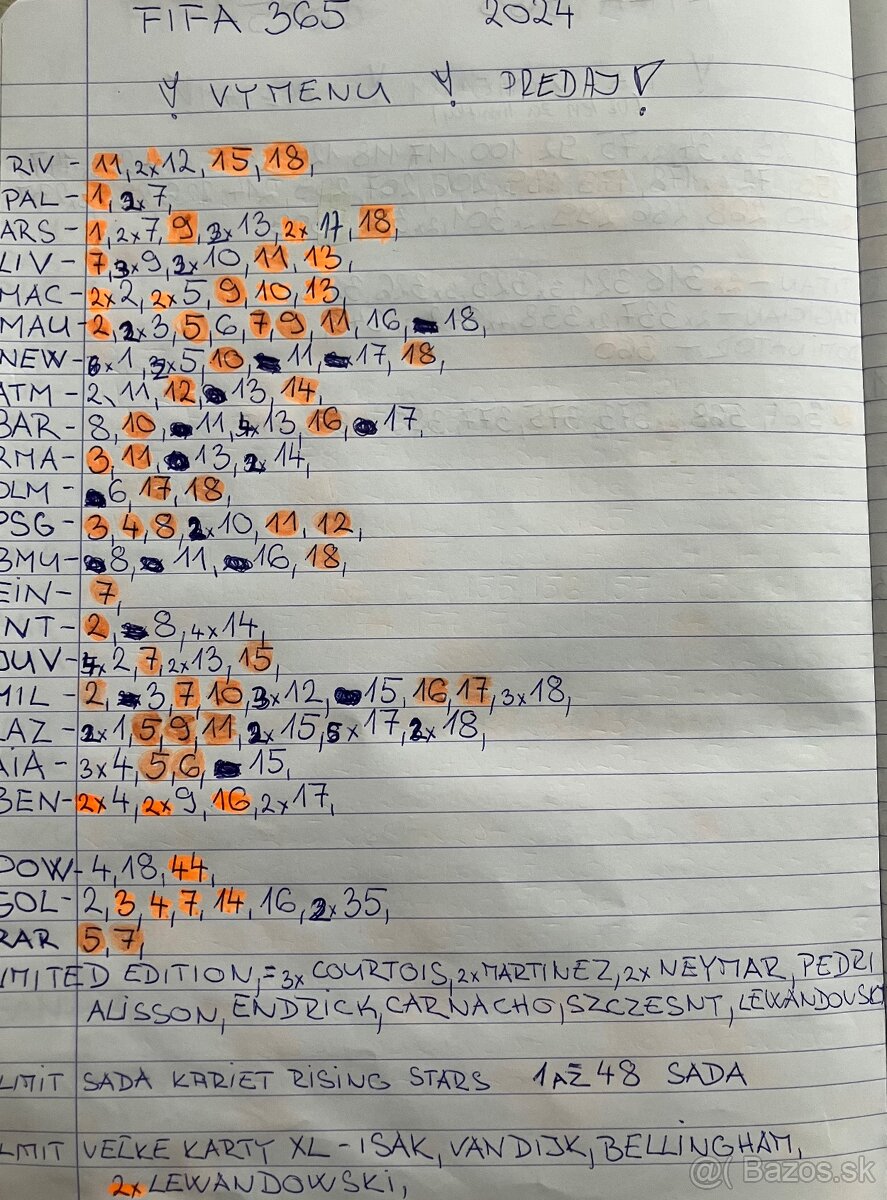 FIFA 365 2024
! VYMENU ! PREDAJ !
RIV - 11, 2x12, 15, 18,
PAL - 1, 2x7,
ARS - 1, 2x7, 9, 3x13, 2x17, 18,
LIV - 7, 3x9, 3x10, 11, 13,
MAC - 2x2, 2x5, 9, 10, 13,
MAU - 2, 2x3, 5, 6, 7, 9, 11, 16, 18,
NEW - 6x1, 3x5, 10, 11, 17, 18,
ATM - 2, 11, 12, 13, 14,
BAR - 8, 10, 11, 4x13, 16, 17,
RMA - 3, 11, 13, 2x14,
OLM - 6, 17, 18,
PSG - 3, 4, 8, 2x10, 11, 12,
BMU - 8, 11, 16, 18,
EIN - 7,
INT - 2, 8, 4x14,
JUV - 4x2, 7, 2x13, 15,
MIL - 2, 3, 7, 10, 3x12, 15, 16, 17, 3x18,
LAZ - 2x1, 5, 9, 11, 2x15, 5x17, 2x18,
AJA - 3x4, 5, 6, 15,
BEN - 2x4, 2x9, 16, 2x17,
POW - 4, 18, 44,
GOL - 2, 3, 4, 7, 14, 16, 2x35,
RAR 5, 7,
LIMITED EDITION, = 3x COURTOIS, 2x MARTINEZ, 2x NEYMAR, PEDRI
ALISSON, ENDRICK, CARNACHO, SZCZESNT, LEWANDOVSKI
LIMIT SADA KARIET RISING STARS 1 AŽ 48 SADA
LIMIT VEĽKE KARTY XL - ISAK, VAN DIJK, BELLINGHAM,
2x LEWANDOWSKI,
@( Bazos.sk